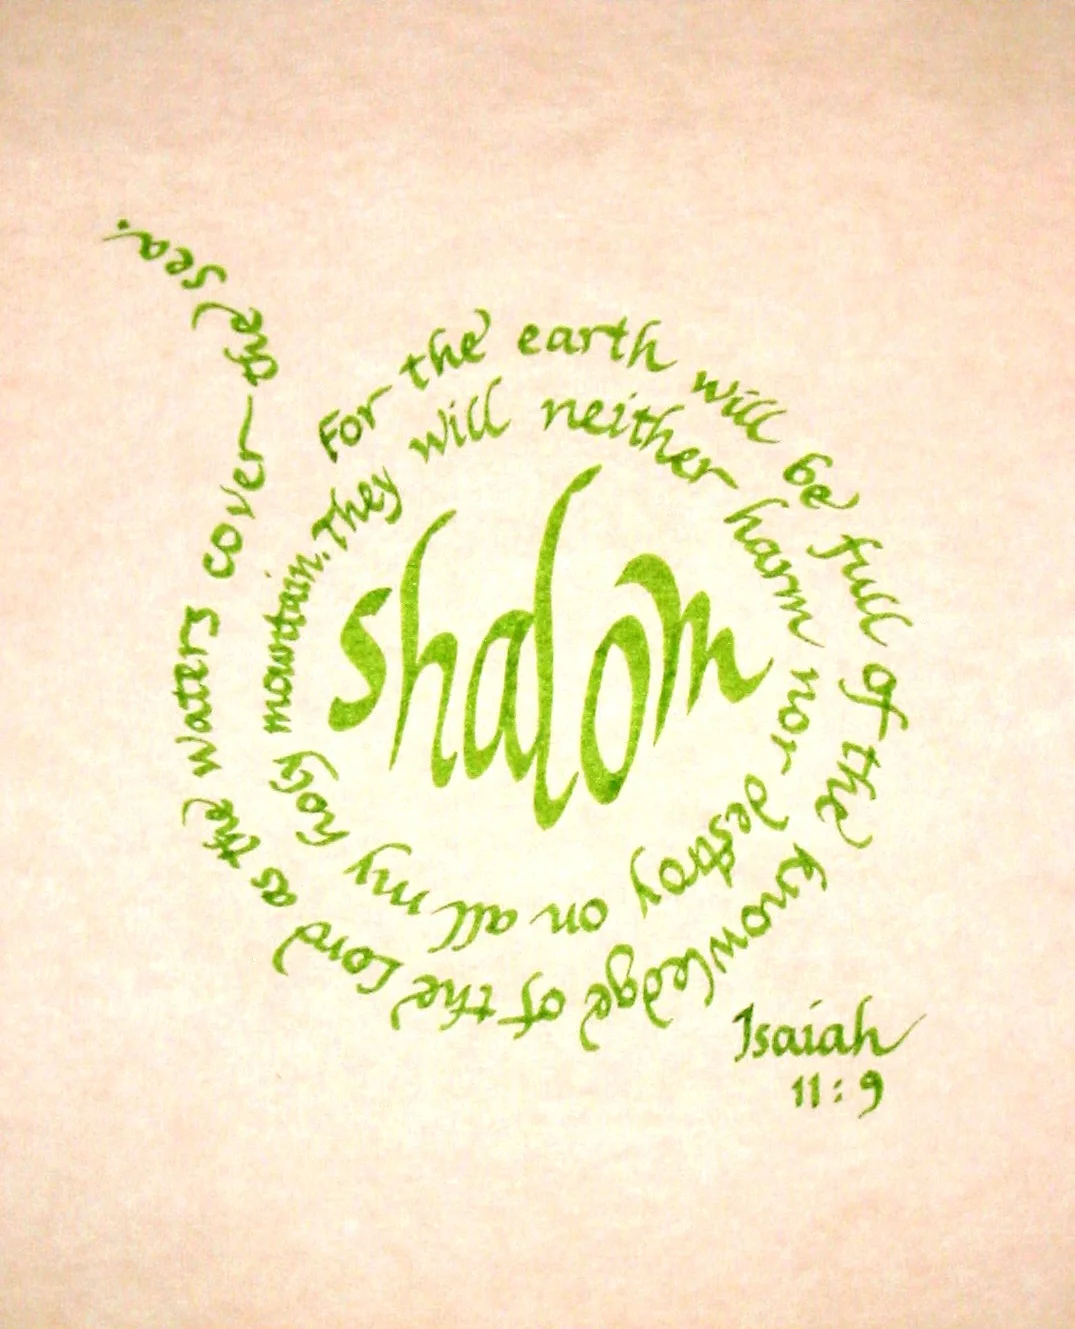 shalom
They will neither harm nor destroy on all my holy mountain.
For the earth will be full of the knowledge of the Lord as the waters cover the sea.
Isaiah
11:9